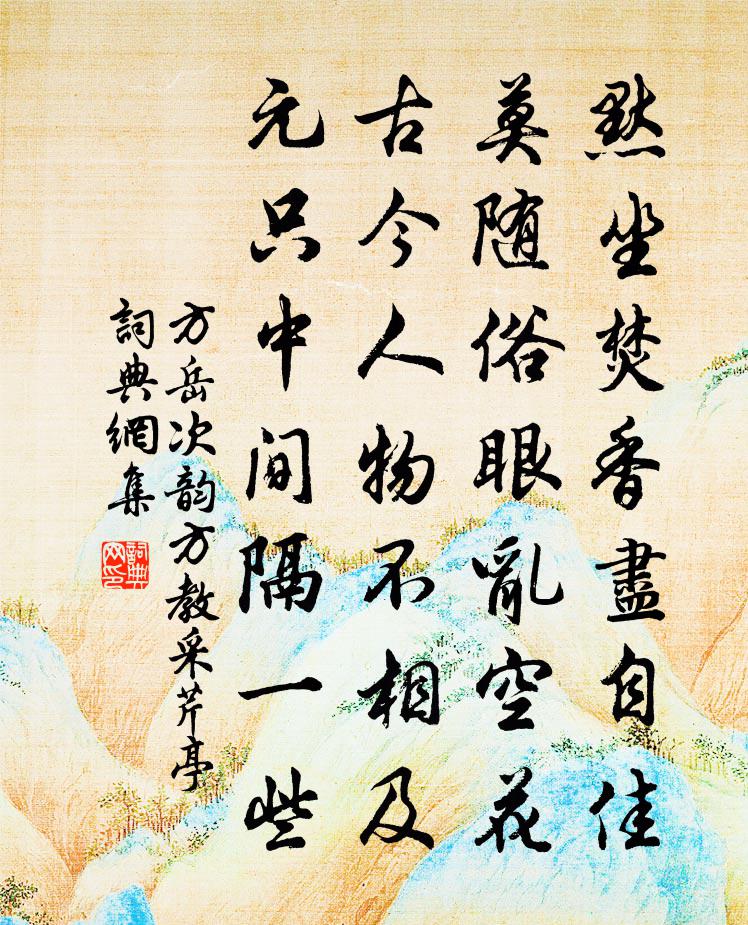 默坐焚香盡自佳
莫随俗眼亂空花
古今人物不相及
元只中間隔一些
方岳次韵方教采芹亭
詞典網集
詞典網印